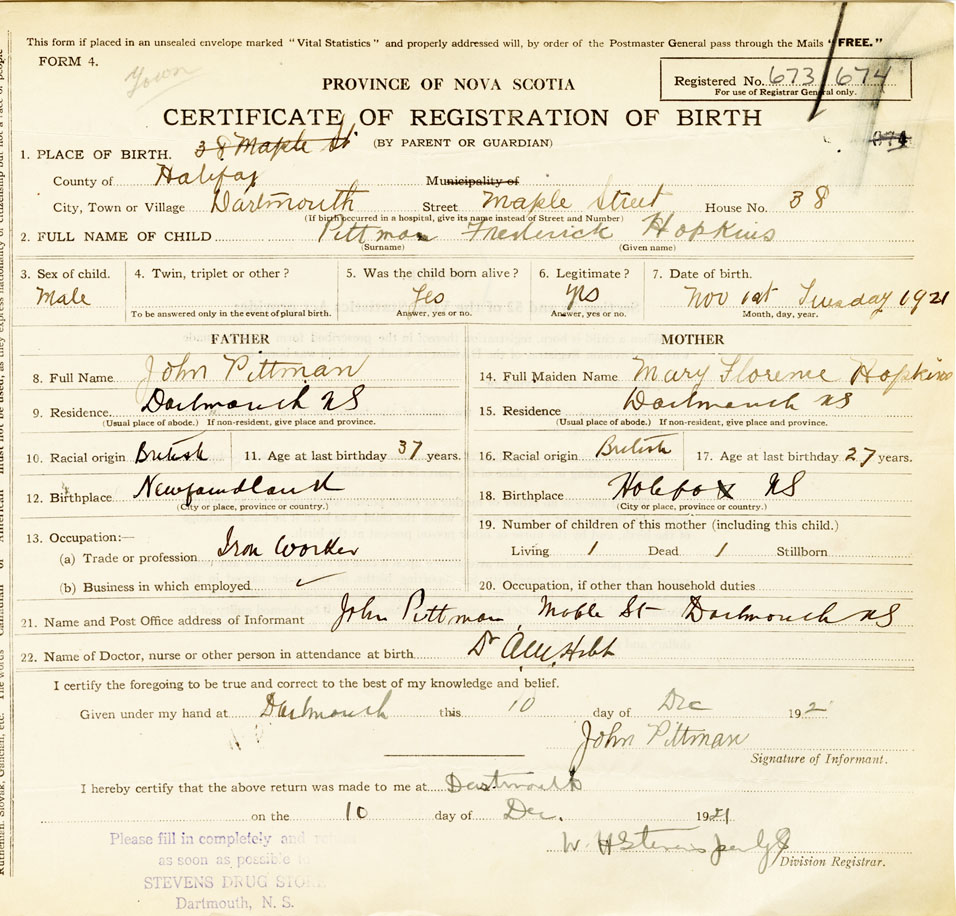 This form if placed in an unsealed envelope marked "Vital Statistics" and properly addressed will, by order of the Postmaster General pass through the Mails "FREE."
FORM 4.
Town
PROVINCE OF NOVA SCOTIA
Registered No. 673 / 674
For use of Registrar General only.
CERTIFICATE OF REGISTRATION OF BIRTH
(BY PARENT OR GUARDIAN)
1. PLACE OF BIRTH. 38 Maple St
County of Halifax Municipality of
City, Town or Village Dartmouth Street Maple Street House No. 38
(If birth occurred in a hospital, give its name instead of Street and Number)
2. FULL NAME OF CHILD Pittman Frederick Hopkins
(Surname) (Given name)
3. Sex of child. 4. Twin, triplet or other? 5. Was the child born alive? 6. Legitimate? 7. Date of birth.
Male Yes yes Nov 1st Tuesday 1921
To be answered only in the event of plural birth. Answer, yes or no. Answer, yes or no. Month, day, year.
FATHER MOTHER
8. Full Name John Pittman 14. Full Maiden Name Mary Florence Hopkins
9. Residence Dartmouth NS 15. Residence Dartmouth NS
(Usual place of abode.) If non-resident, give place and province. (Usual place of abode.) If non-resident, give place and province.
10. Racial origin British 11. Age at last birthday 37 years. 16. Racial origin British 17. Age at last birthday 27 years.
12. Birthplace Newfoundland 18. Birthplace Halifax NS
(City or place, province or country.) (City or place, province or country.)
13. Occupation:— 19. Number of children of this mother (including this child.)
(a) Trade or profession Iron Worker Living 1 Dead 1 Stillborn
(b) Business in which employed ✓ 20. Occupation, if other than household duties
21. Name and Post Office address of Informant John Pittman, Maple St Dartmouth NS
22. Name of Doctor, nurse or other person in attendance at birth. Dr
I certify the foregoing to be true and correct to the best of my knowledge and belief.
Given under my hand at Dartmouth this 10 day of Dec 192
John Pittman
Signature of Informant.
I hereby certify that the above return was made to me at Dartmouth
on the 10 day of Dec. 1921
W H Stevens per
Division Registrar.
Please fill in completely and
as soon as possible to
STEVENS DRUG STORE
Dartmouth, N. S.